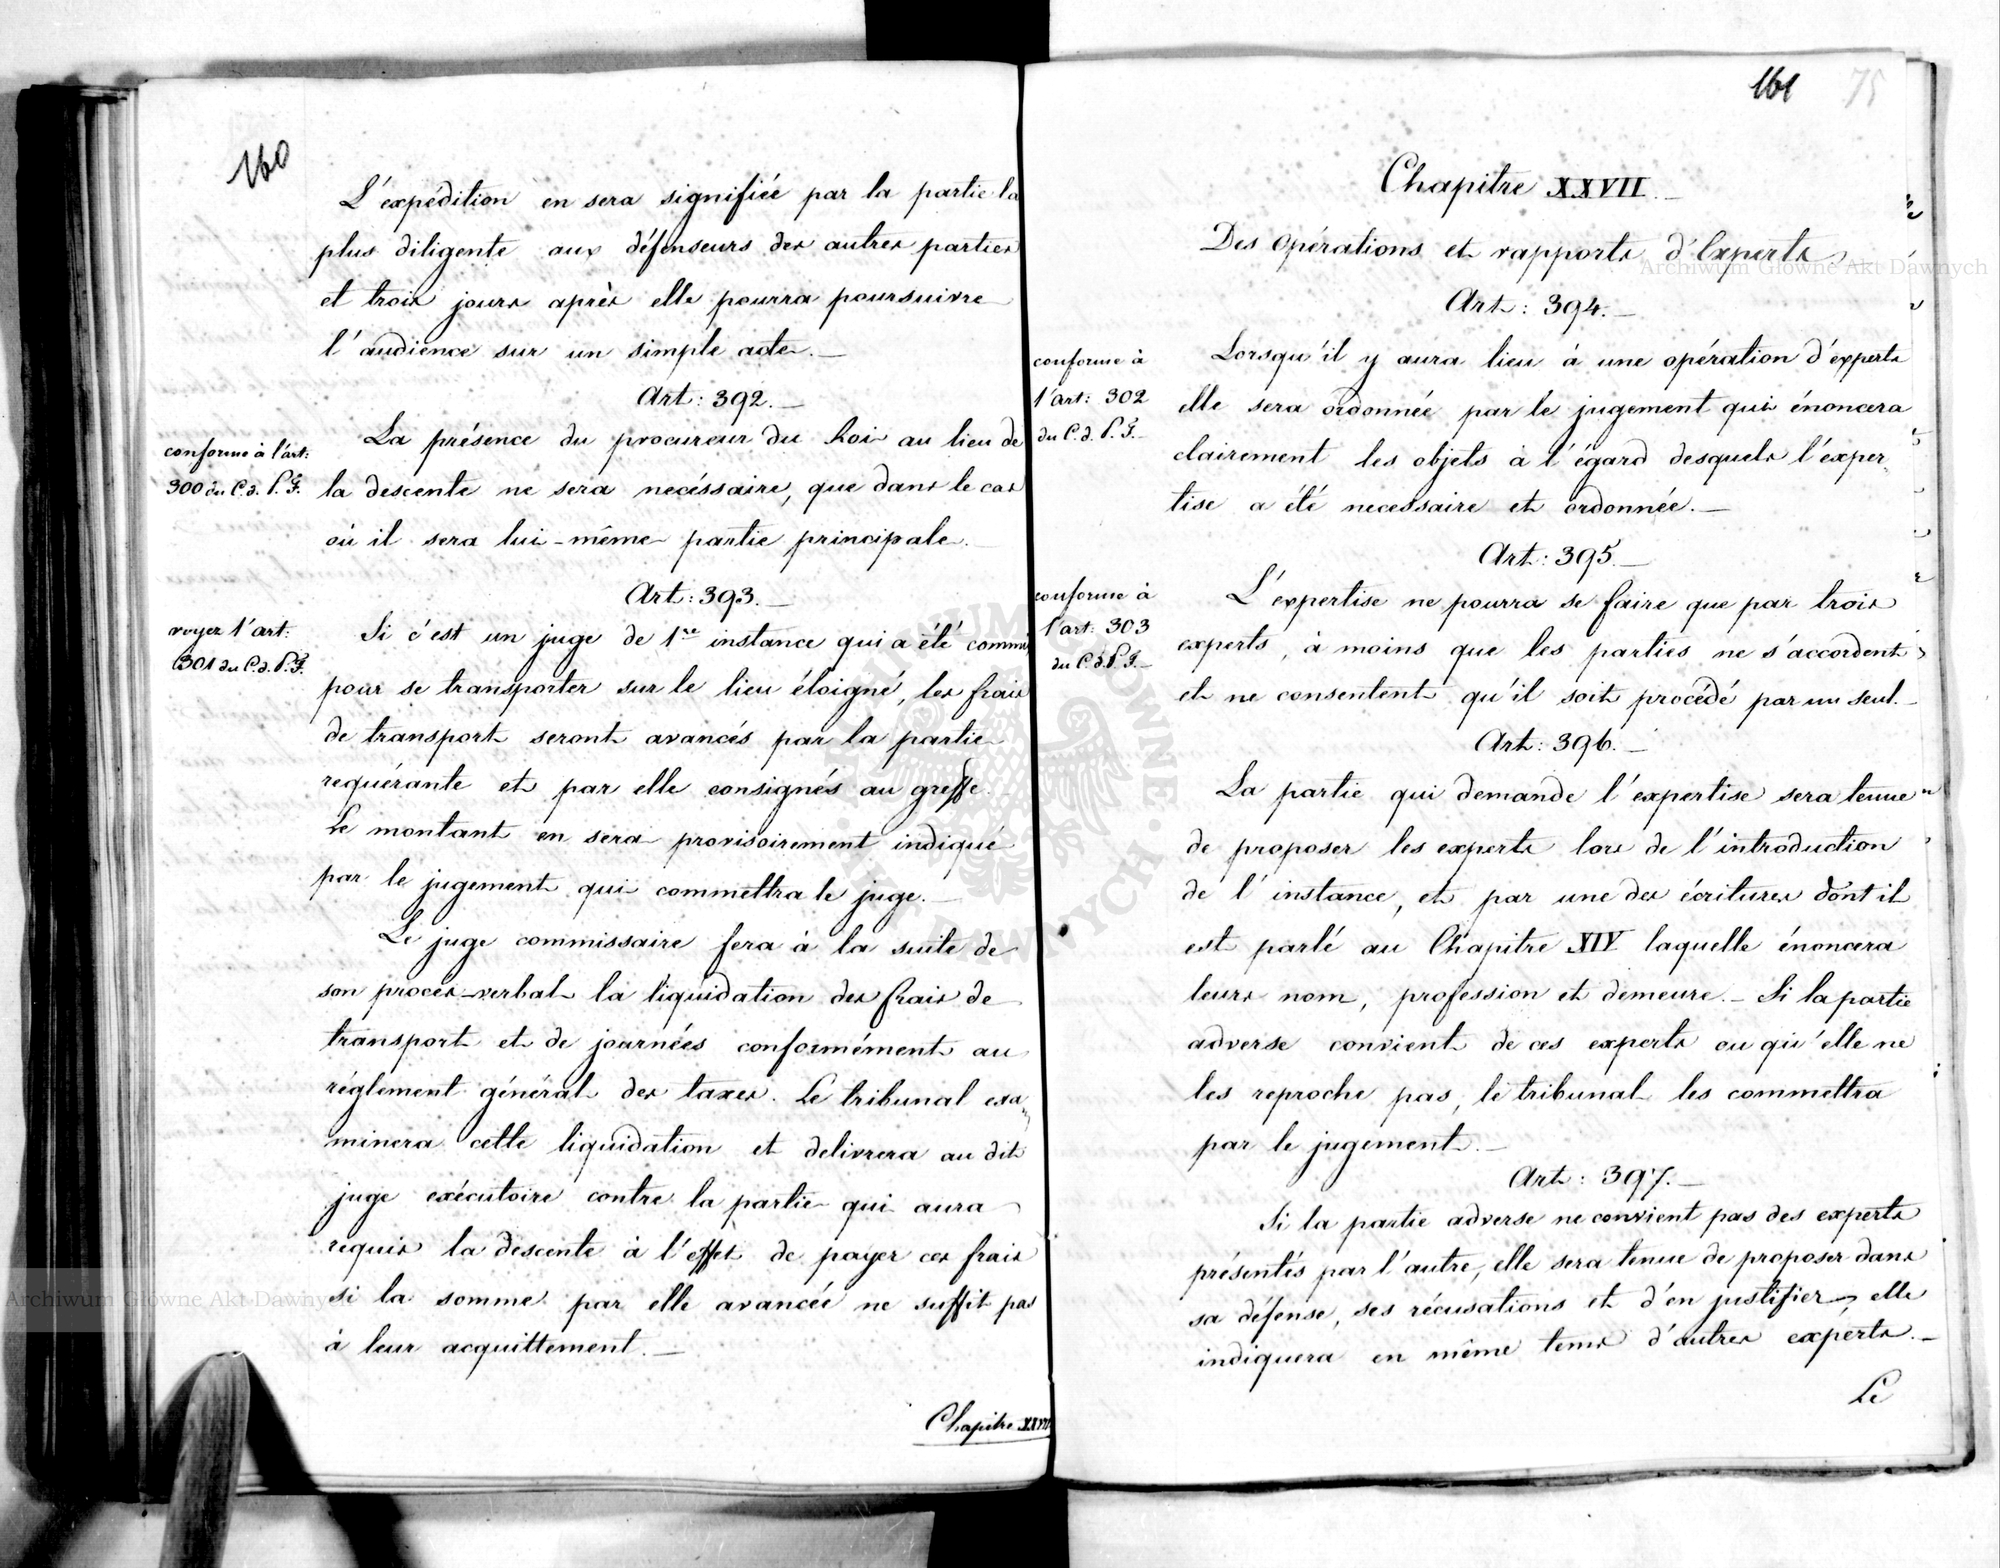 160
L'expédition en sera signifiée par la partie la
plus diligente aux défenseurs des autres parties
et trois jours après elle pourra poursuivre
l'audience sur un simple acte.—
Art: 392.—
conforme à l'art:
300 du C. d. P. F.
La présence du procureur du Roi au lieu de
la descente ne sera necéssaire, que dans le cas
où il sera lui-même partie principale.—
Art: 393.—
voyez l'art:
301 du C. d. P. F.
Si c'est un juge de 1re instance qui a été commis
pour se transporter sur le lieu éloigné, les frais
de transport seront avancés par la partie
requérante et par elle consignés au greffe.
Le montant en sera provisoirement indiqué
par le jugement qui commettra le juge.—
Le juge commissaire fera à la suite de
son procès-verbal la liquidation des frais de
transport et de journées conformément au
réglement général des taxes. Le tribunal exa
minera cette liquidation et delivrera au dit
juge exécutoire contre la partie qui aura
requis la descente à l'effet de payer ces frais
si la somme par elle avancée ne suffit pas
à leur acquittement.—
Chapitre XXVII
161 75
Chapitre XXVII.—
Des Opérations et rapports d'Experts
Art: 394.—
conforme à
l'art: 302
du C. d. P. F.—
Lorsqu'il y aura lieu à une opération d'experts
elle sera ordonnée par le jugement qui énoncera
clairement les objets à l'égard desquels l'exper
tise a été necessaire et ordonnée.—
Art: 395.—
conforme à
l'art: 303
du C. d. P. F.—
L'expertise ne pourra se faire que par trois
experts, à moins que les parties ne s'accordent
et ne consentent qu'il soit procédé par un seul.—
Art: 396.—
La partie qui demande l'expertise sera tenue
de proposer les experts lors de l'introduction
de l'instance, et par une des écritures dont il
est parlé au Chapitre XIV laquelle énoncera
leurs nom, profession et demeure.— Si la partie
adverse convient de ces experts ou qu'elle ne
les reproche pas, le tribunal les commettra
par le jugement.—
Art: 397.—
Si la partie adverse ne convient pas des experts
présentés par l'autre, elle sera tenue de proposer dans
sa défense, ses récusations et d'en justifier, elle
indiquera en même tems d'autres experts.—
Le
Archiwum Główne Akt Dawnych
Archiwum Główne Akt Dawnych
ARCHIWUM GŁÓWNE AKT DAWNYCH